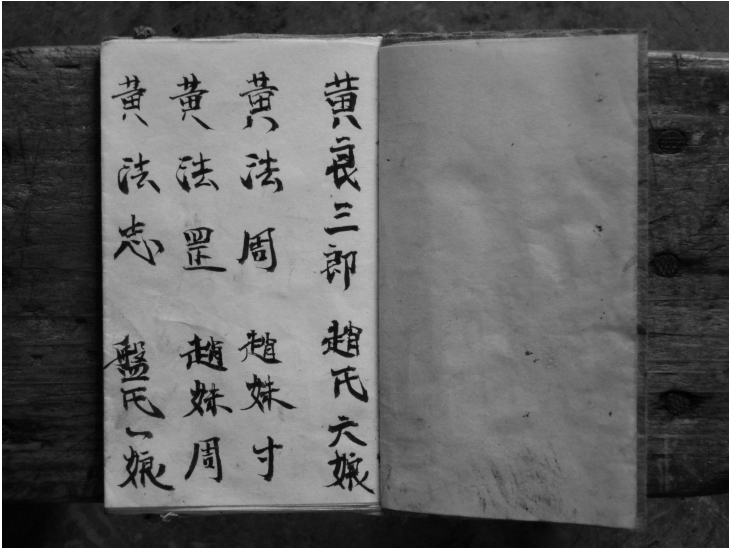 黃良三郎 趙氏六娘
黃法周 趙妹寸
黃法罡 趙妹周
黃法志 盤氏一娘